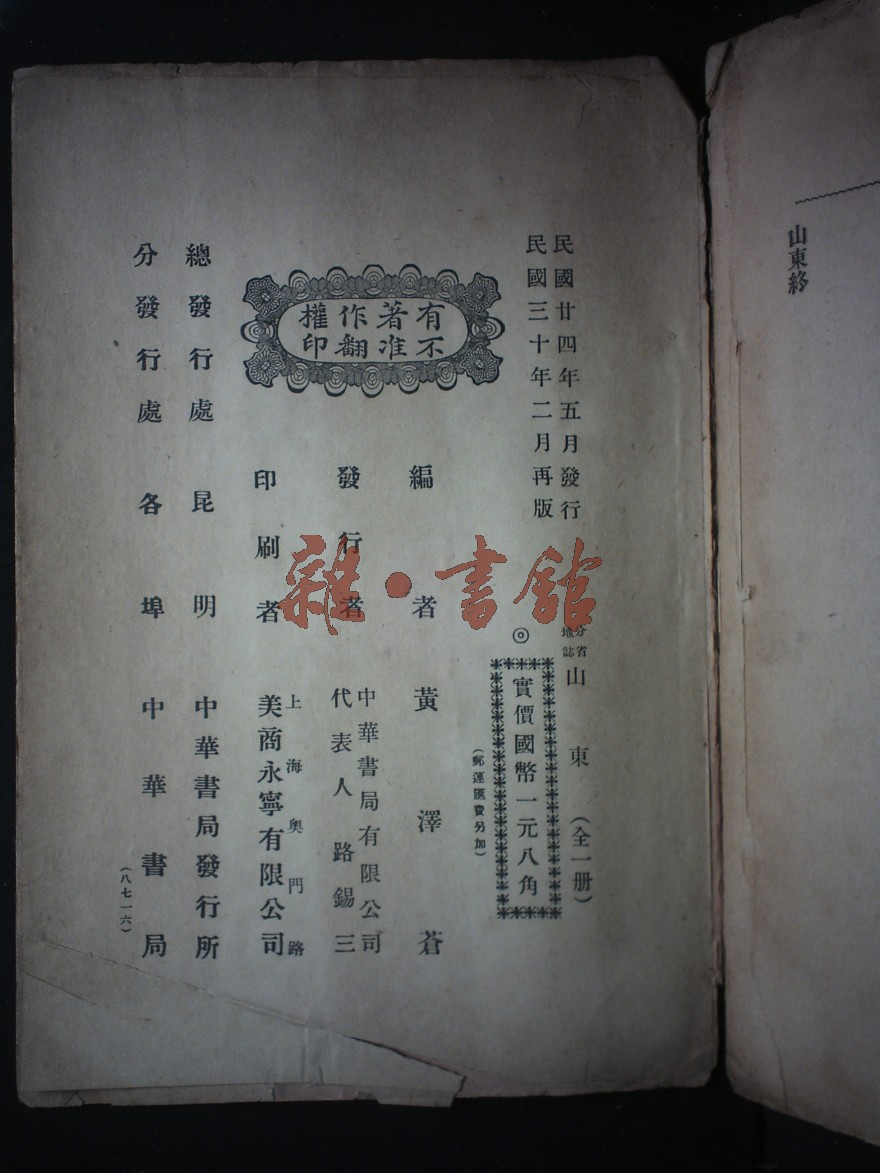 山東終
民國廿四年五月發行
民國三十年二月再版
分省地誌
山東(全一册)
◎
實價國幣一元八角
(郵運匯費另加)
編者 黃澤蒼
發行者
中華書局有限公司
代表人 路錫三
印刷者
上海奥門路
美商永寧有限公司
有著作權
不准翻印
總發行處 昆明 中華書局發行所
分發行處 各埠 中華書局
(八七一六)
雜·書館